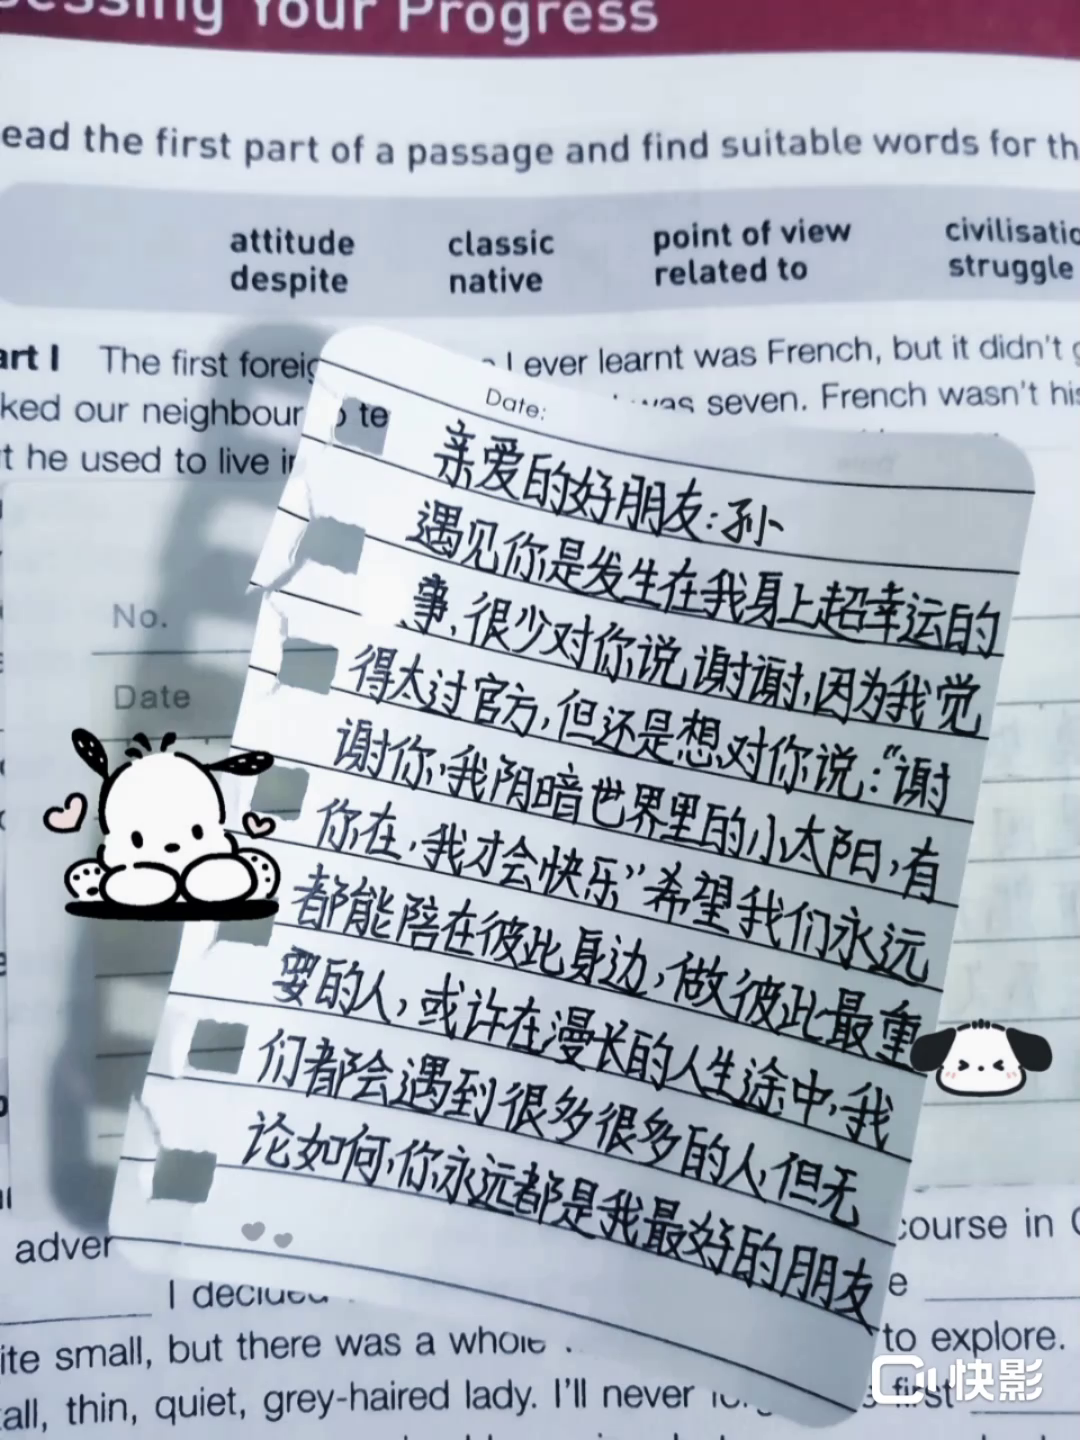 Your Progress
ead the first part of a passage and find suitable words for th
attitude classic point of view
despite native related to struggle
art I The first I ever learnt was French, but it didn't
ked our neighbour was seven. French wasn't his
t he used to live
Date:
亲爱的好朋友:孙
遇见你是发生在我身上超幸运的
事,很少对你说谢谢,因为我觉
得太过官方,但还是想对你说:“谢
谢你,我阴暗世界里的小太阳,有
你在,我才会快乐”希望我们永远
都能陪在彼此身边,做彼此最重
要的人,或许在漫长的人生途中,我
们都会遇到很多很多的人,但无
论如何,你永远都是我最好的朋友
No.
Date
adver
course in
I decided
ite small, but there was a whole to explore.
all, thin, quiet, grey-haired lady. I'll never first
快影